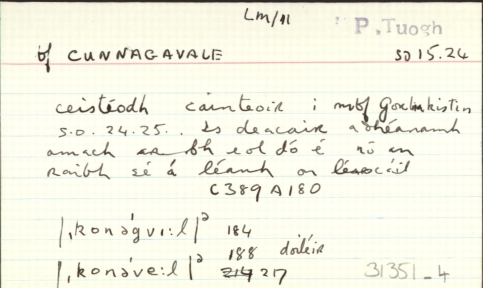 Lm/11 P. Tuogh
bf CUNNAGAVALE SO 15.24
ceistéodh cainteoir i mbf Gortnakistin
S.O. 24.25. Is deacair a dhéanamh
amach ar bh eol dó é nó an
raibh sé á léamh on léarscáil
C389 A180
|ˌkonəgviːl|ᵊ 184
188 doiléir
|ˌkonəveːl|ᵊ 217
31351_4